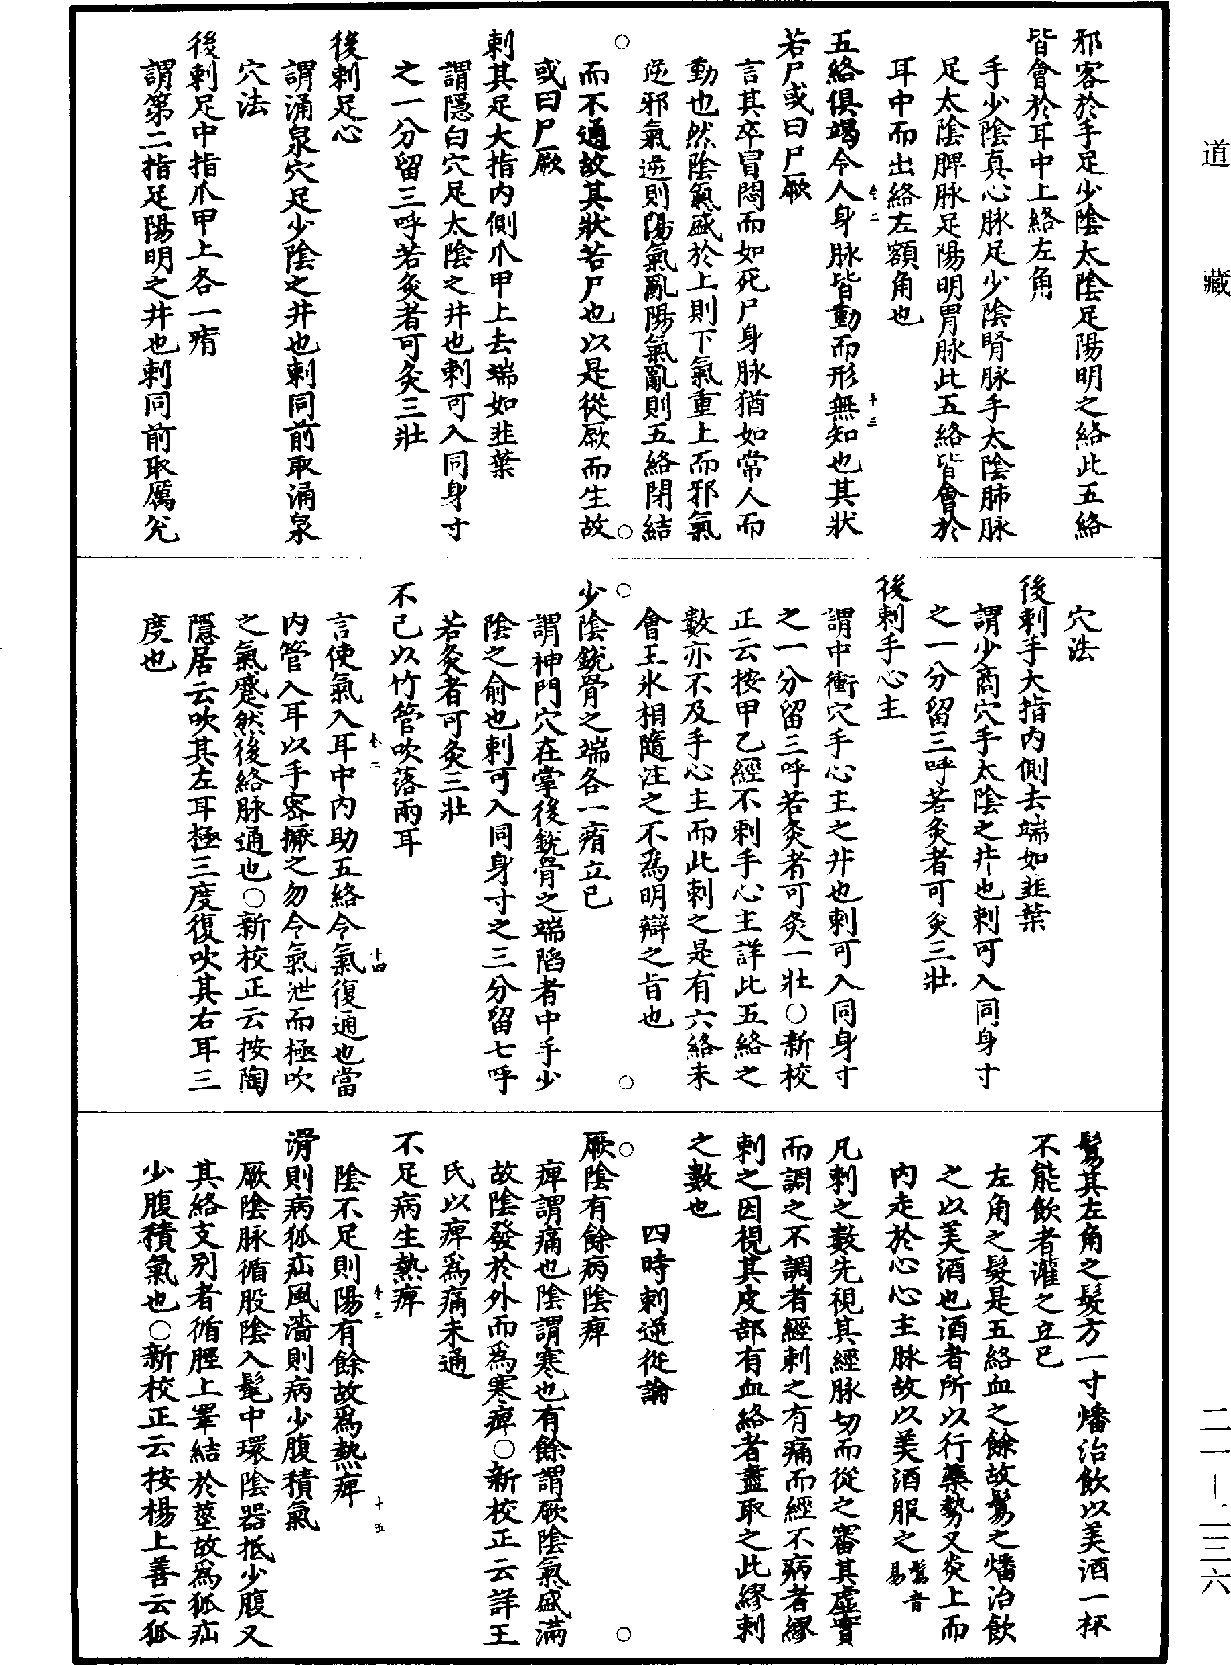 道藏
邪客於手足少陰太陰足陽明之絡此五絡
皆會於耳中上絡左角
手少陰真心脉足少陰腎脉手太陰肺脉
足太陰脾脉足陽明胃脉此五絡皆會於
耳中而出絡左額角也
五絡俱竭令人身脉皆動而形無知也其狀
若尸或曰尸厥
言其卒冒悶而如死尸身脉猶如常人而
動也然陰氣盛於上則下氣重上而邪氣
逆邪氣逆則陽氣亂陽氣亂則五絡閉結
而不通故其狀若尸也以是從厥而生故
或曰尸厥
刺其足大指内側爪甲上去端如韭葉
謂隱白穴足太陰之井也刺可入同身寸
之一分留三呼若灸者可灸三壯
後刺足心
謂涌泉穴足少陰之井也刺同前取涌泉
穴法
後刺足中指爪甲上各一痏
謂第二指足陽明之井也刺同前取厲兊
穴法
後刺手大指内側去端如韭葉
謂少商穴手太陰之井也刺可入同身寸
之一分留三呼若灸者可灸三壯
後刺手心主
謂中衝穴手心主之井也刺可入同身寸
之一分留三呼若灸者可灸一壯○新校
正云按甲乙經不刺手心主詳此五絡之
數亦不及手心主而此刺之是有六絡未
會王氷相隨注之不爲明辯之旨也
少陰銳骨之端各一痏立已
謂神門穴在掌後銳骨之端陷者中手少
陰之俞也刺可入同身寸之三分留七呼
若灸者可灸三壯
不已以竹管吹落兩耳
言使氣入耳中内助五絡令氣復通也當
内管入耳以手密擫之勿令氣泄而極吹
之氣蹙然後絡脉通也○新校正云按陶
隱居云吹其左耳極三度復吹其右耳三
度也
鬄其左角之髮方一寸燔治飲以美酒一杯
不能飲者灌之立已
左角之髮是五絡血之餘故鬄之燔治飲
之以美酒也酒者所以行藥勢又炎上而
内走於心心主脉故以美酒服之鬄音易
凡刺之數先視其經脉切而從之審其虛實
而調之不調者經刺之有痛而經不病者繆
刺之因視其皮部有血絡者盡取之此繆刺
之數也
四時刺逆從論
厥陰有餘病陰痺
痺謂痛也陰謂寒也有餘謂厥陰氣盛滿
故陰發於外而爲寒痺○新校正云詳王
氏以痺爲痛未通
不足病生熱痺
陰不足則陽有餘故爲熱痺
滑則病狐疝風濇則病少腹積氣
厥陰脉循股陰入髦中環陰器抵少腹又
其絡支别者循脛上睪結於莖故爲狐疝
少腹積氣也○新校正云按楊上善云狐
卷二
十三
卷二
十四
卷二
十五
二一—二三六